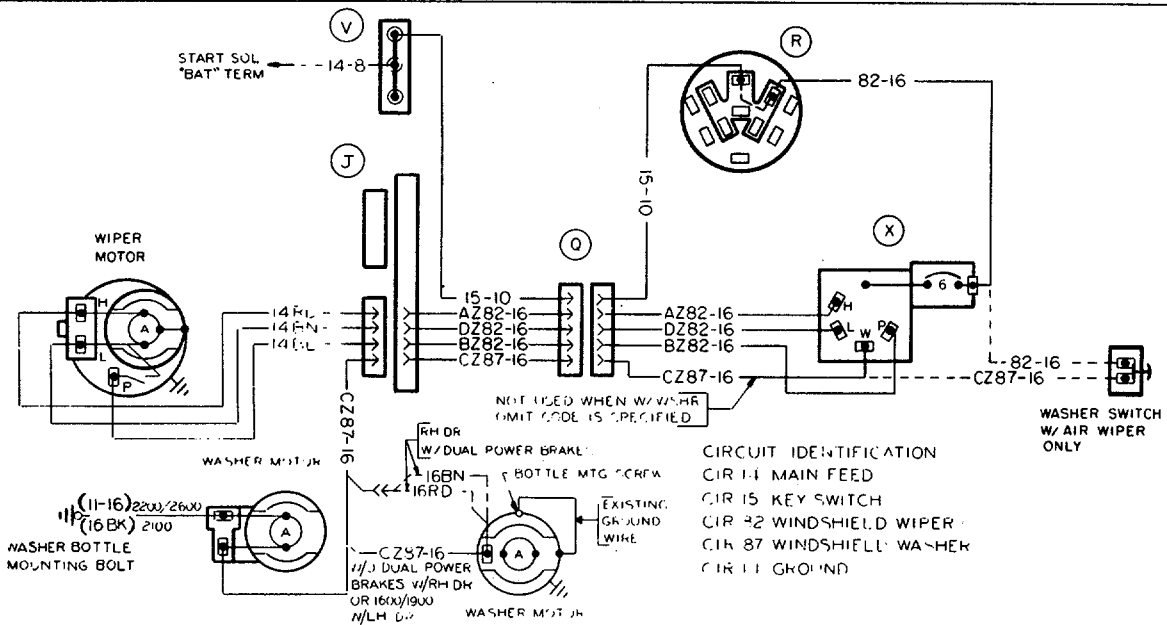 V
START SOL
"BAT" TERM
14-8
R
82-16
J
15-10
WIPER
MOTOR
Q
X
H
A
L
P
14RD
14BN
14BL
15-10
AZ82-16
DZ82-16
BZ82-16
CZ87-16
AZ82-16
DZ82-16
BZ82-16
CZ87-16
H
L
W
P
6
82-16
CZ87-16
WASHER SWITCH
W/ AIR WIPER
ONLY
NOT USED WHEN W/WSHR
OMIT CODE IS SPECIFIED
CZ87-16
RH DR
W/DUAL POWER BRAKE
16BN
16RD
BOTTLE MTG SCREW
EXISTING
GROUND
WIRE
WASHER MOTOR
(11-16) 2200/2600
(16 BK) 2100
A
WASHER BOTTLE
MOUNTING BOLT
CZ87-16
W/O DUAL POWER
BRAKES W/RH DR
OR 1600/1900
A
WASHER MOTOR
CIRCUIT IDENTIFICATION
CIR 14 MAIN FEED
CIR 15 KEY SWITCH
CIR 82 WINDSHIELD WIPER
CIR 87 WINDSHIELD WASHER
CIR 11 GROUND